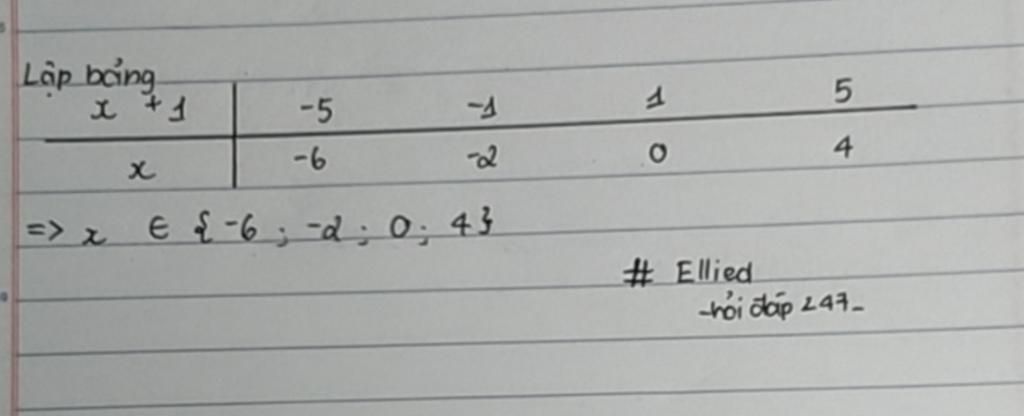 Lập bảng
x + 1 -5 -1 1 5
x -6 -2 0 4
=> x ∈ {-6 ; -2 ; 0 ; 4}
# Ellied
-hỏi đáp 247-